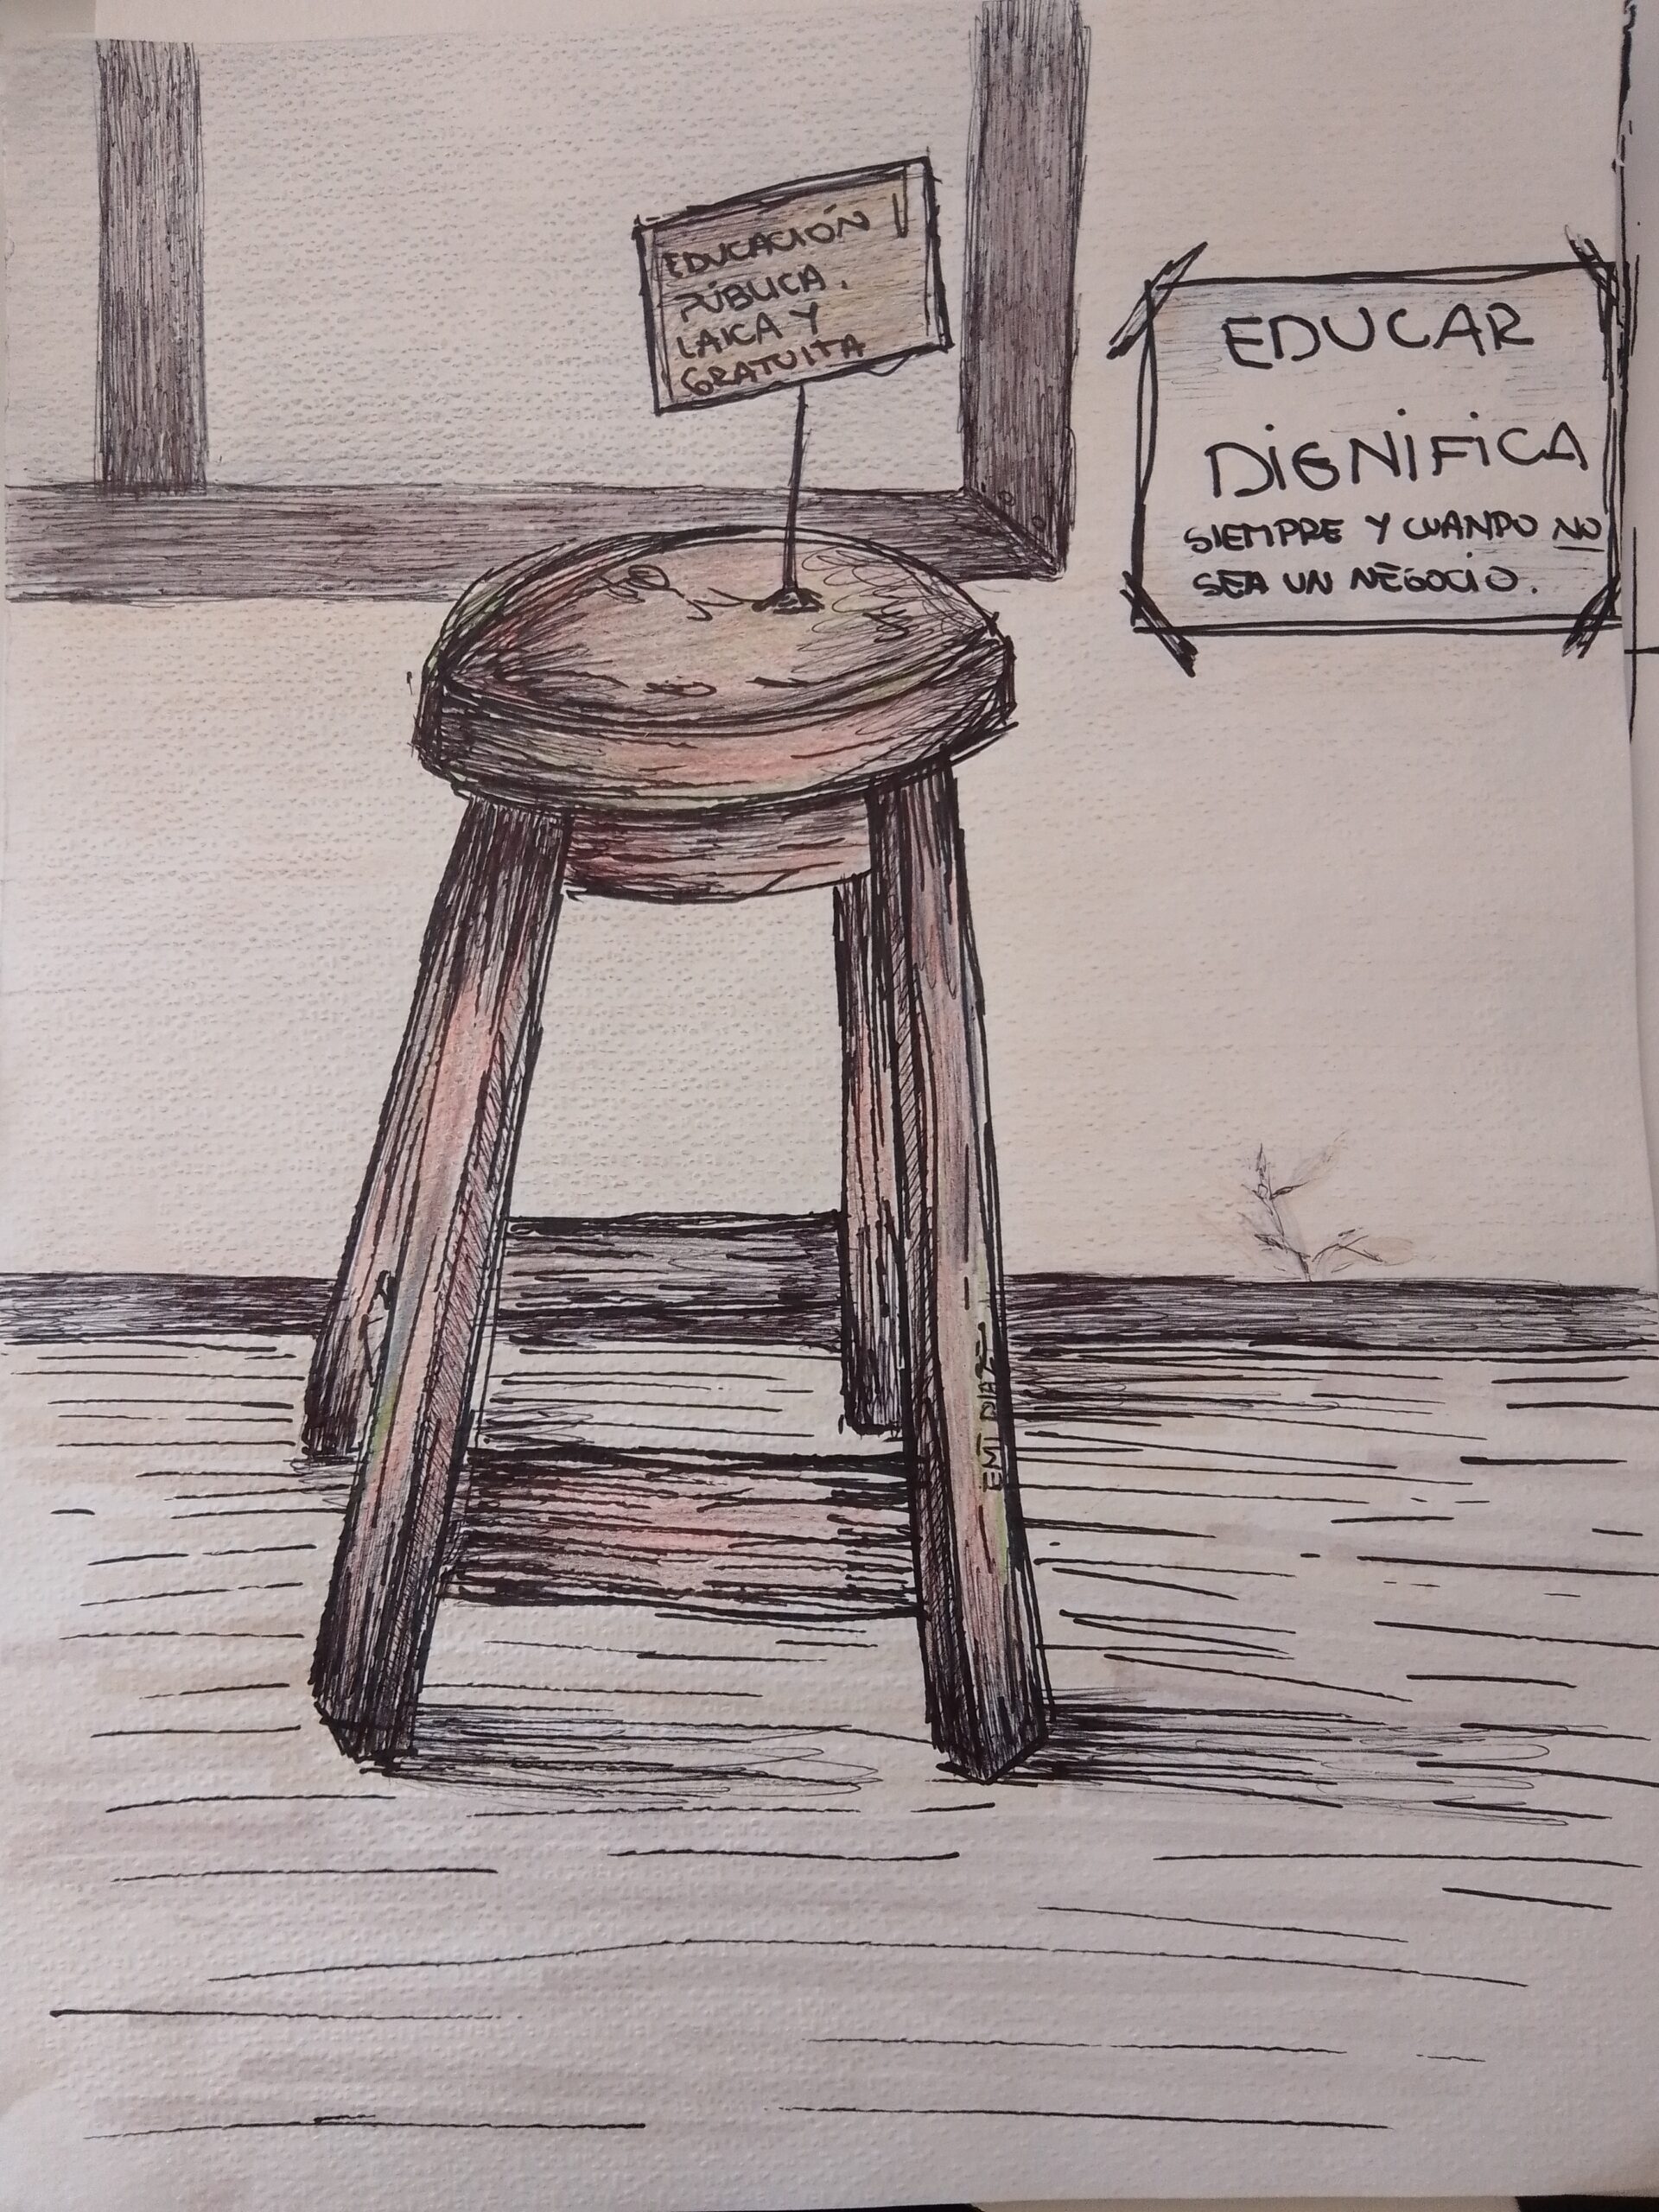 EDUCACIÓN
PÚBLICA,
LAICA Y
GRATUITA
EDUCAR
DIGNIFICA
SIEMPRE Y CUANDO NO
SEA UN NEGOCIO.
EMI DIAZ